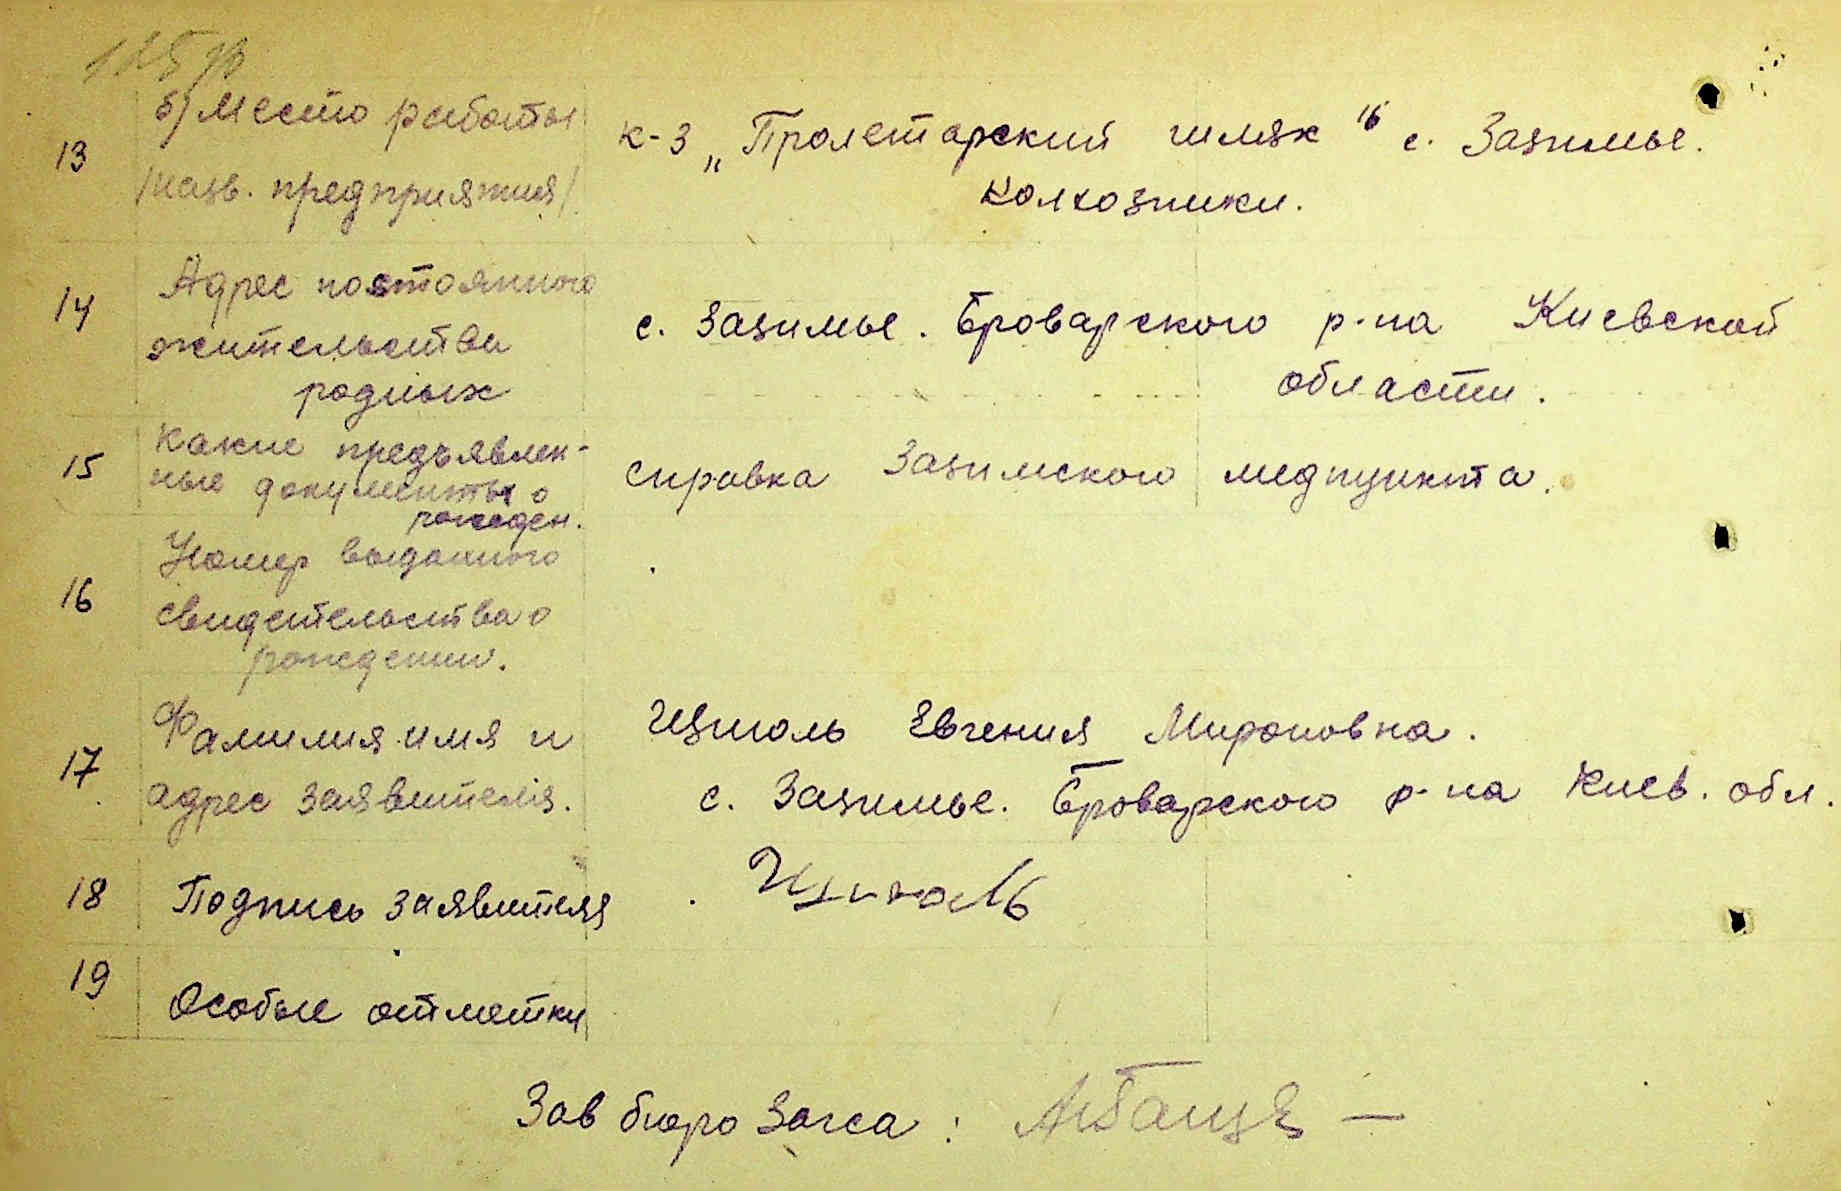 б) Место работы
13 к-з „Пролетарский шлях" с. Зазимье.
/назв. предприятия/ колхозники.
14 Адрес постоянного
жительства с. Зазимье. Броварского р-на Киевской
родных области.
15 Какие предъявлен-
ные документы о справка Зазимского медпункта.
рожден.
Номер выданного
16 свидетельства о
рождении.
17 Фамилия имя и Евгения Мироновна.
адрес заявителя. с. Зазимье. Броварского р-на Киев. обл.
18 Подпись заявителя
19 Особые отметки
Зав бюро Загса: